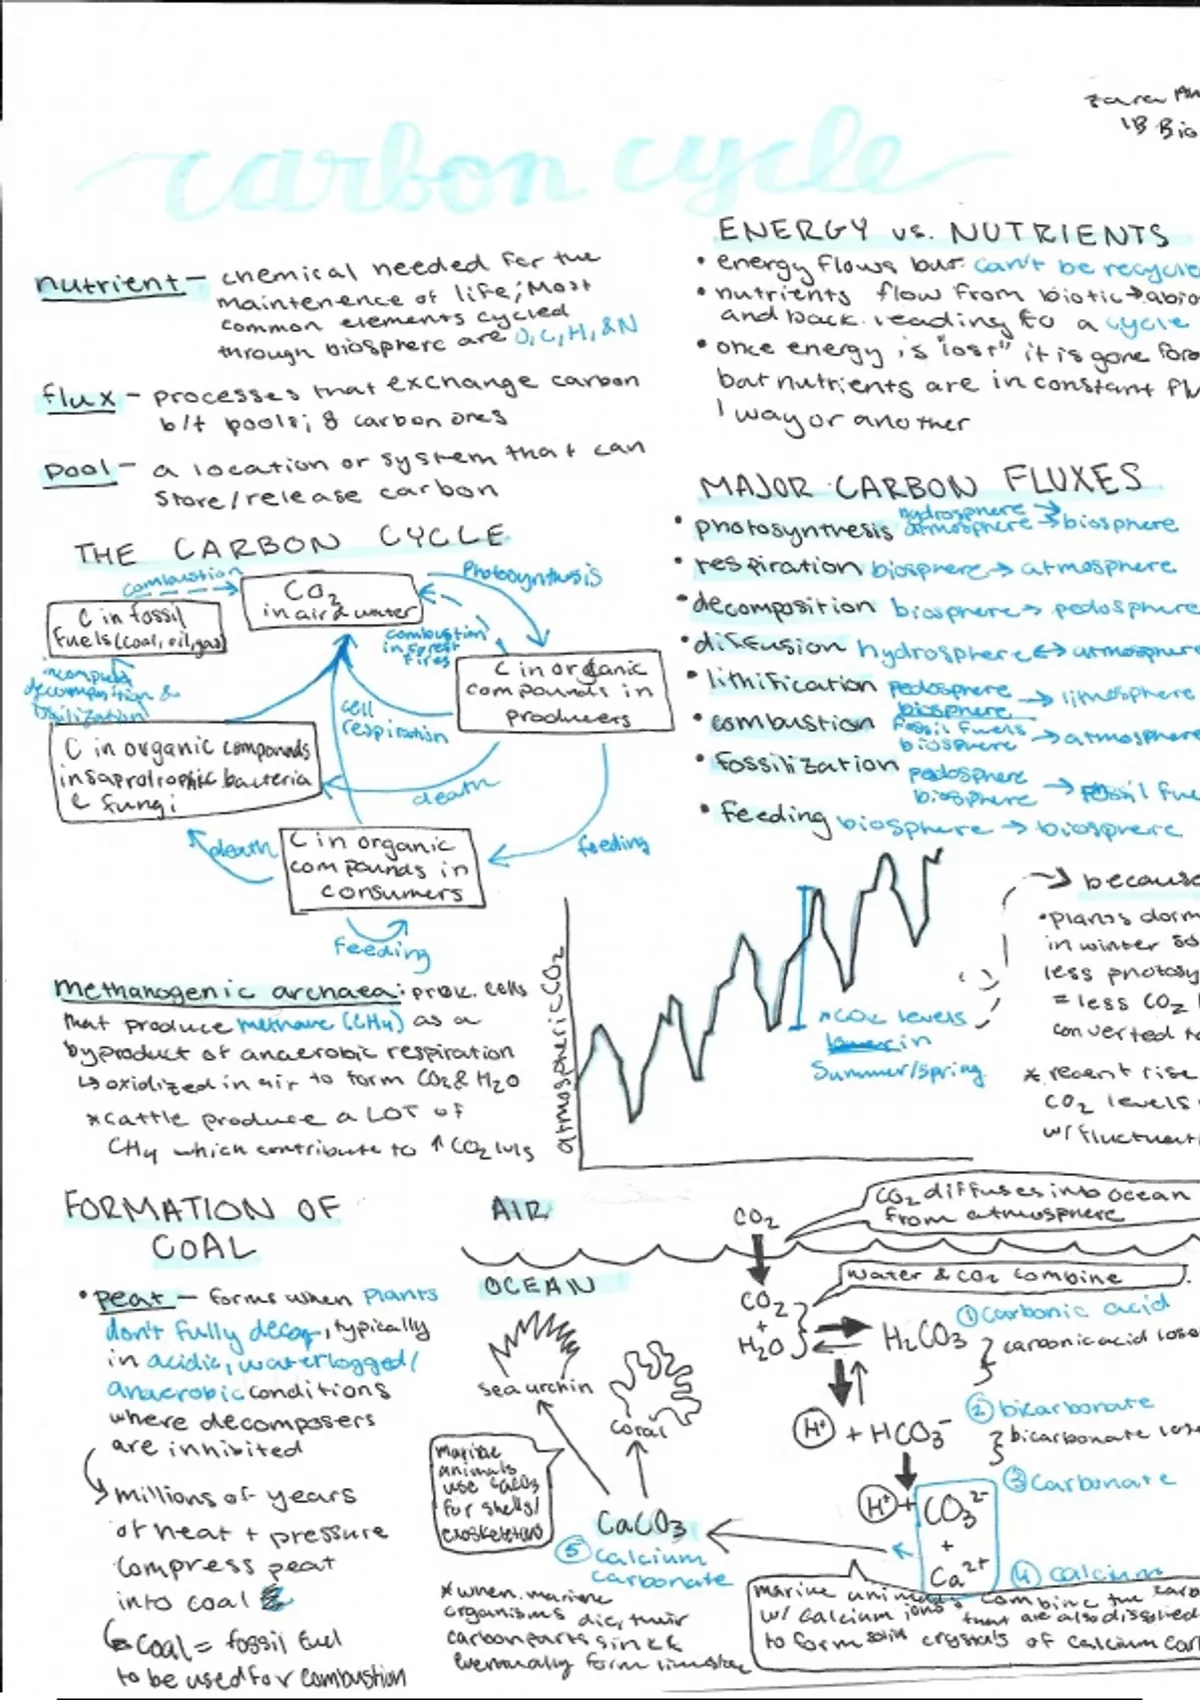 zara
IB Bio
carbon cycle
nutrient – chemical needed for the
maintenence of life; Most
common elements cycled
through biosphere are O, C, H, & N
flux – processes that exchange carbon
b/t pools; 8 carbon ones
pool – a location or system that can
store/release carbon
ENERGY vs. NUTRIENTS
• energy flows but can't be recycle
• nutrients flow from biotic → abio
and back. leading to a cycle
• once energy is "lost" it is gone fore
but nutrients are in constant flu
1 way or another
THE CARBON CYCLE
combustion
CO2
in air & water
Photosynthesis
C in fossil
fuels (coal, oil, gas)
combustion
in forest
fires
C in organic
compounds in
producers
decomposition &
fossilization
cell
respiration
C in organic compounds
in saprotrophic bacteria
& fungi
death
death
C in organic
compounds in
consumers
feeding
Feeding
MAJOR CARBON FLUXES
• photosynthesis hydrosphere →
atmosphere → biosphere
• respiration biosphere → atmosphere
• decomposition biosphere → pedosphere
• diffusion hydrosphere ↔ atmosphere
• lithification pedosphere
biosphere → lithosphere
• combustion fossil fuels
biosphere → atmosphere
• fossilization pedosphere
biosphere → fossil fue
• feeding biosphere → biosphere
methanogenic archaea: prok. cells
that produce methane (CH4) as a
byproduct of anaerobic respiration
↳ oxidized in air to form CO2 & H2O
*cattle produce a LOT of
CH4 which contribute to ↑ CO2 lvls
atmospheric CO2
*CO2 levels
in
Summer/spring
→ because
• plants dorm
in winter so
less photosy
= less CO2
converted t
* recent rise
CO2 levels
w/ fluctuati
FORMATION OF
COAL
• peat – forms when plants
don't fully decomp, typically
in acidic, waterlogged/
anaerobic conditions
where decomposers
are inhibited
millions of years
of heat + pressure
compress peat
into coal
coal = fossil fuel
to be used for combustion
AIR
OCEAN
CO2
CO2 diffuses into ocean
from atmosphere
water & CO2 combine
CO2
+
H2O
H2CO3
① Carbonic acid
carbonic acid lose
H+ + HCO3-
② bicarbonate
bicarbonate lose
H+ + CO3 2-
③ Carbonate
+
Ca2+
④ calcium
sea urchin
coral
marine
animals
use CaCO3
for shells/
exoskeletons
CaCO3
⑤ calcium
carbonate
marine animals combine the carb
w/ calcium ions that are also dissolved
to form solid crystals of calcium car
*when marine
organisms die, their
carbon parts sink &
eventually form limestone